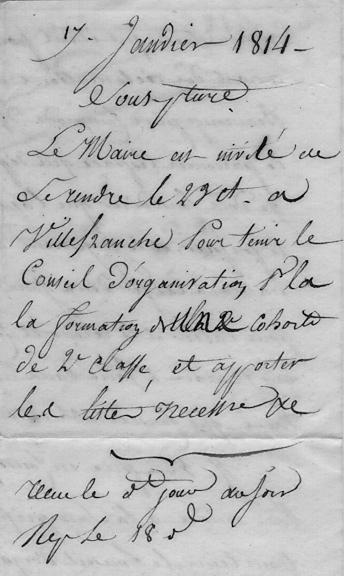 17. Janvier 1814 -
Sous pture
Le Maire est invité de
Se rendre le 23 ct. a
Villefranche Pour tenir le
Conseil d'organisation, Pr la
la formation d'une cohorte
de 2e classe, et apporter
les listes
recu le d. jour au soir
Rep le 18 d